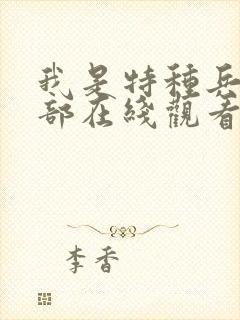 我是特種兵
部在綫觀看
李香